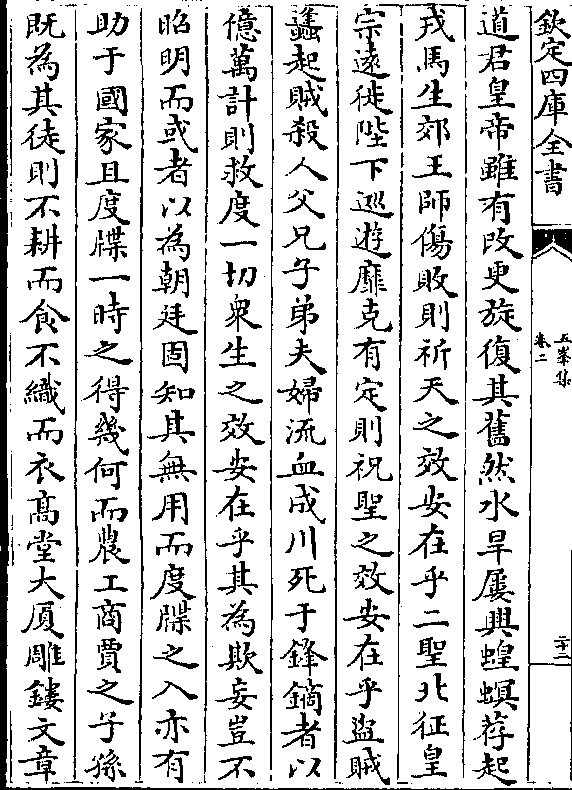 欽定四庫全書
五峯集
卷二
二十二
道君皇帝雖有改更旋復其舊然水旱屢興蝗螟荐起
戎馬生郊王師傷敗則祈天之效安在乎二聖北征皇
宗遠徙陛下巡遊靡克有定則祝聖之效安在乎盗賊
蠭起賊殺人父兄子弟夫婦流血成川死于鋒鏑者以
億萬計則救度一切衆生之效安在乎其為欺妄豈不
昭明而或者以為朝廷固知其無用而度牒之入亦有
助于國家且度牒一時之得幾何而農工商賈之子孫
既為其徒則不耕而食不織而衣髙堂大厦雕鏤文章